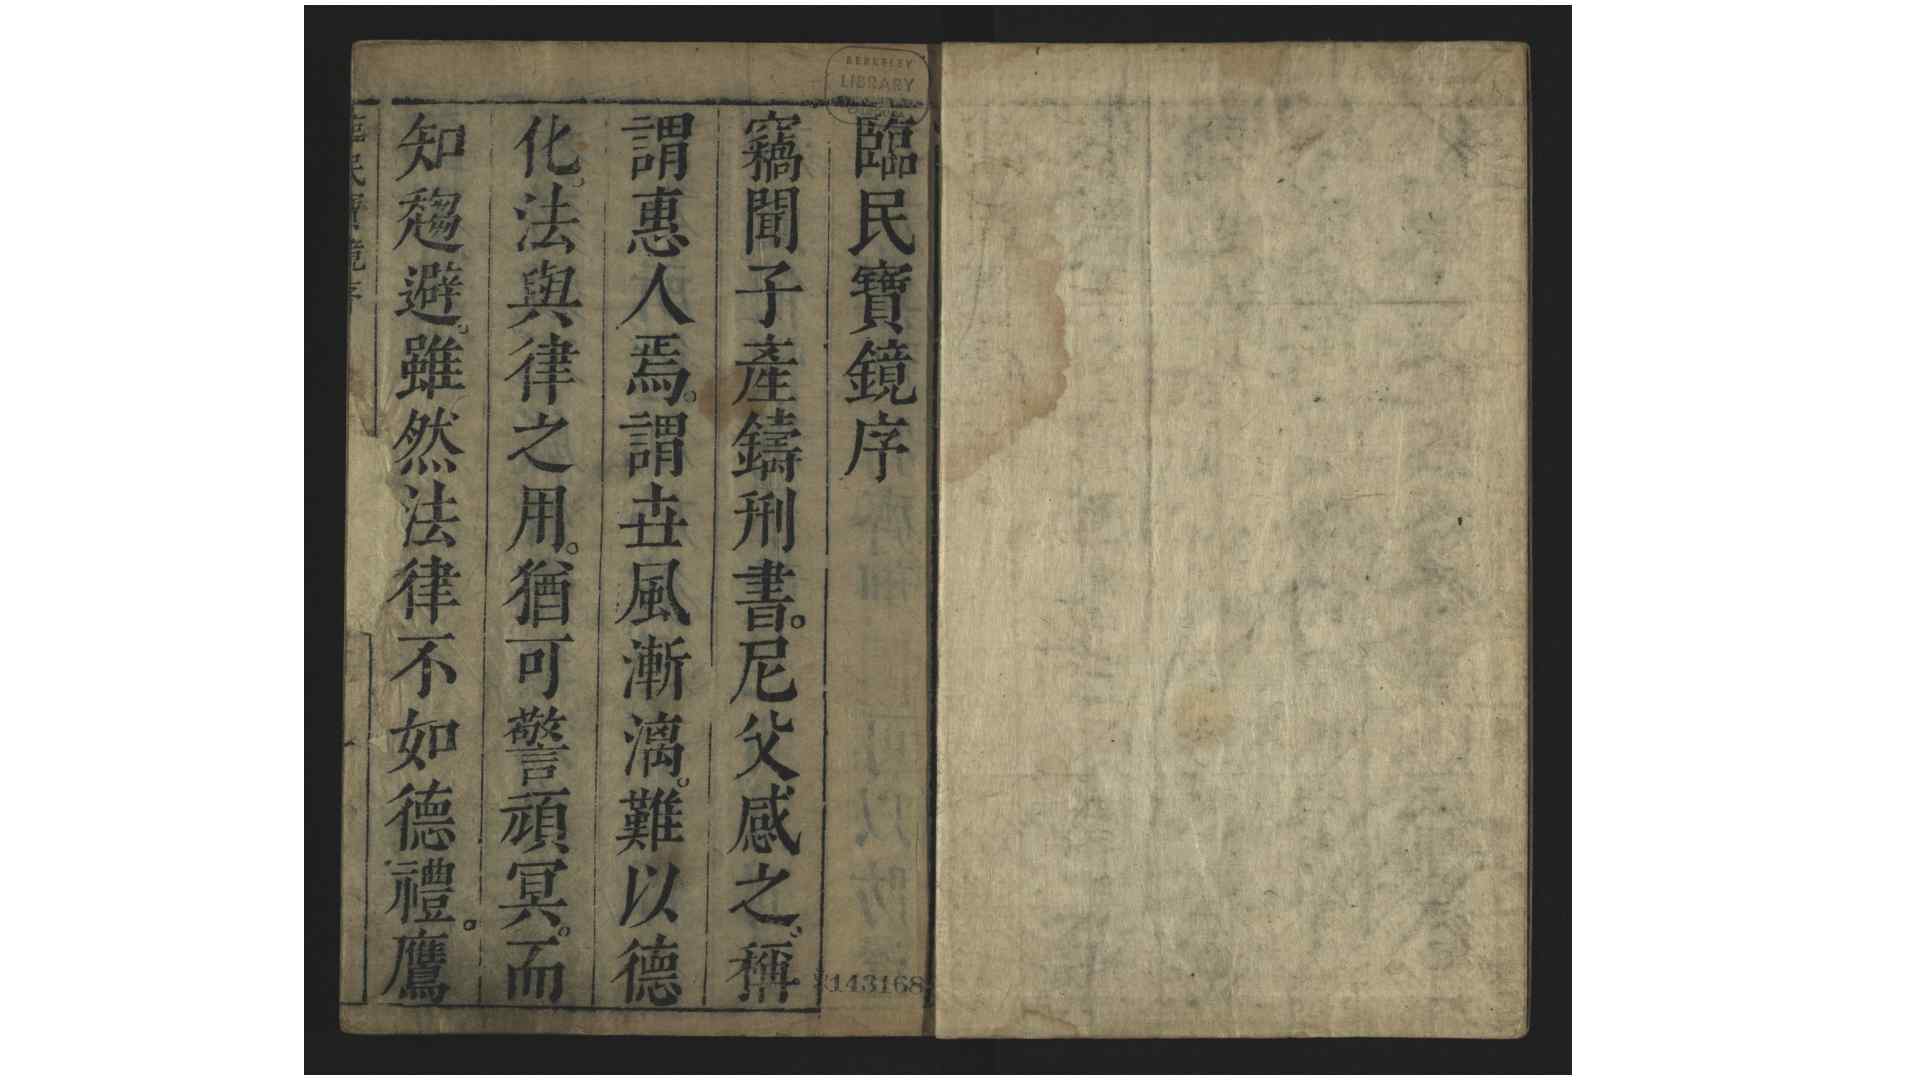 臨民寶鏡序
竊聞子產鑄刑書。尼父感之。稱
謂惠人焉。謂丗風漸漓。難以德
化。法與律之用。猶可警頑冥。而
知趨避。雖然法律不如德禮。鷹
臨民寶鏡序
BERKELEY
LIBRARY
143168